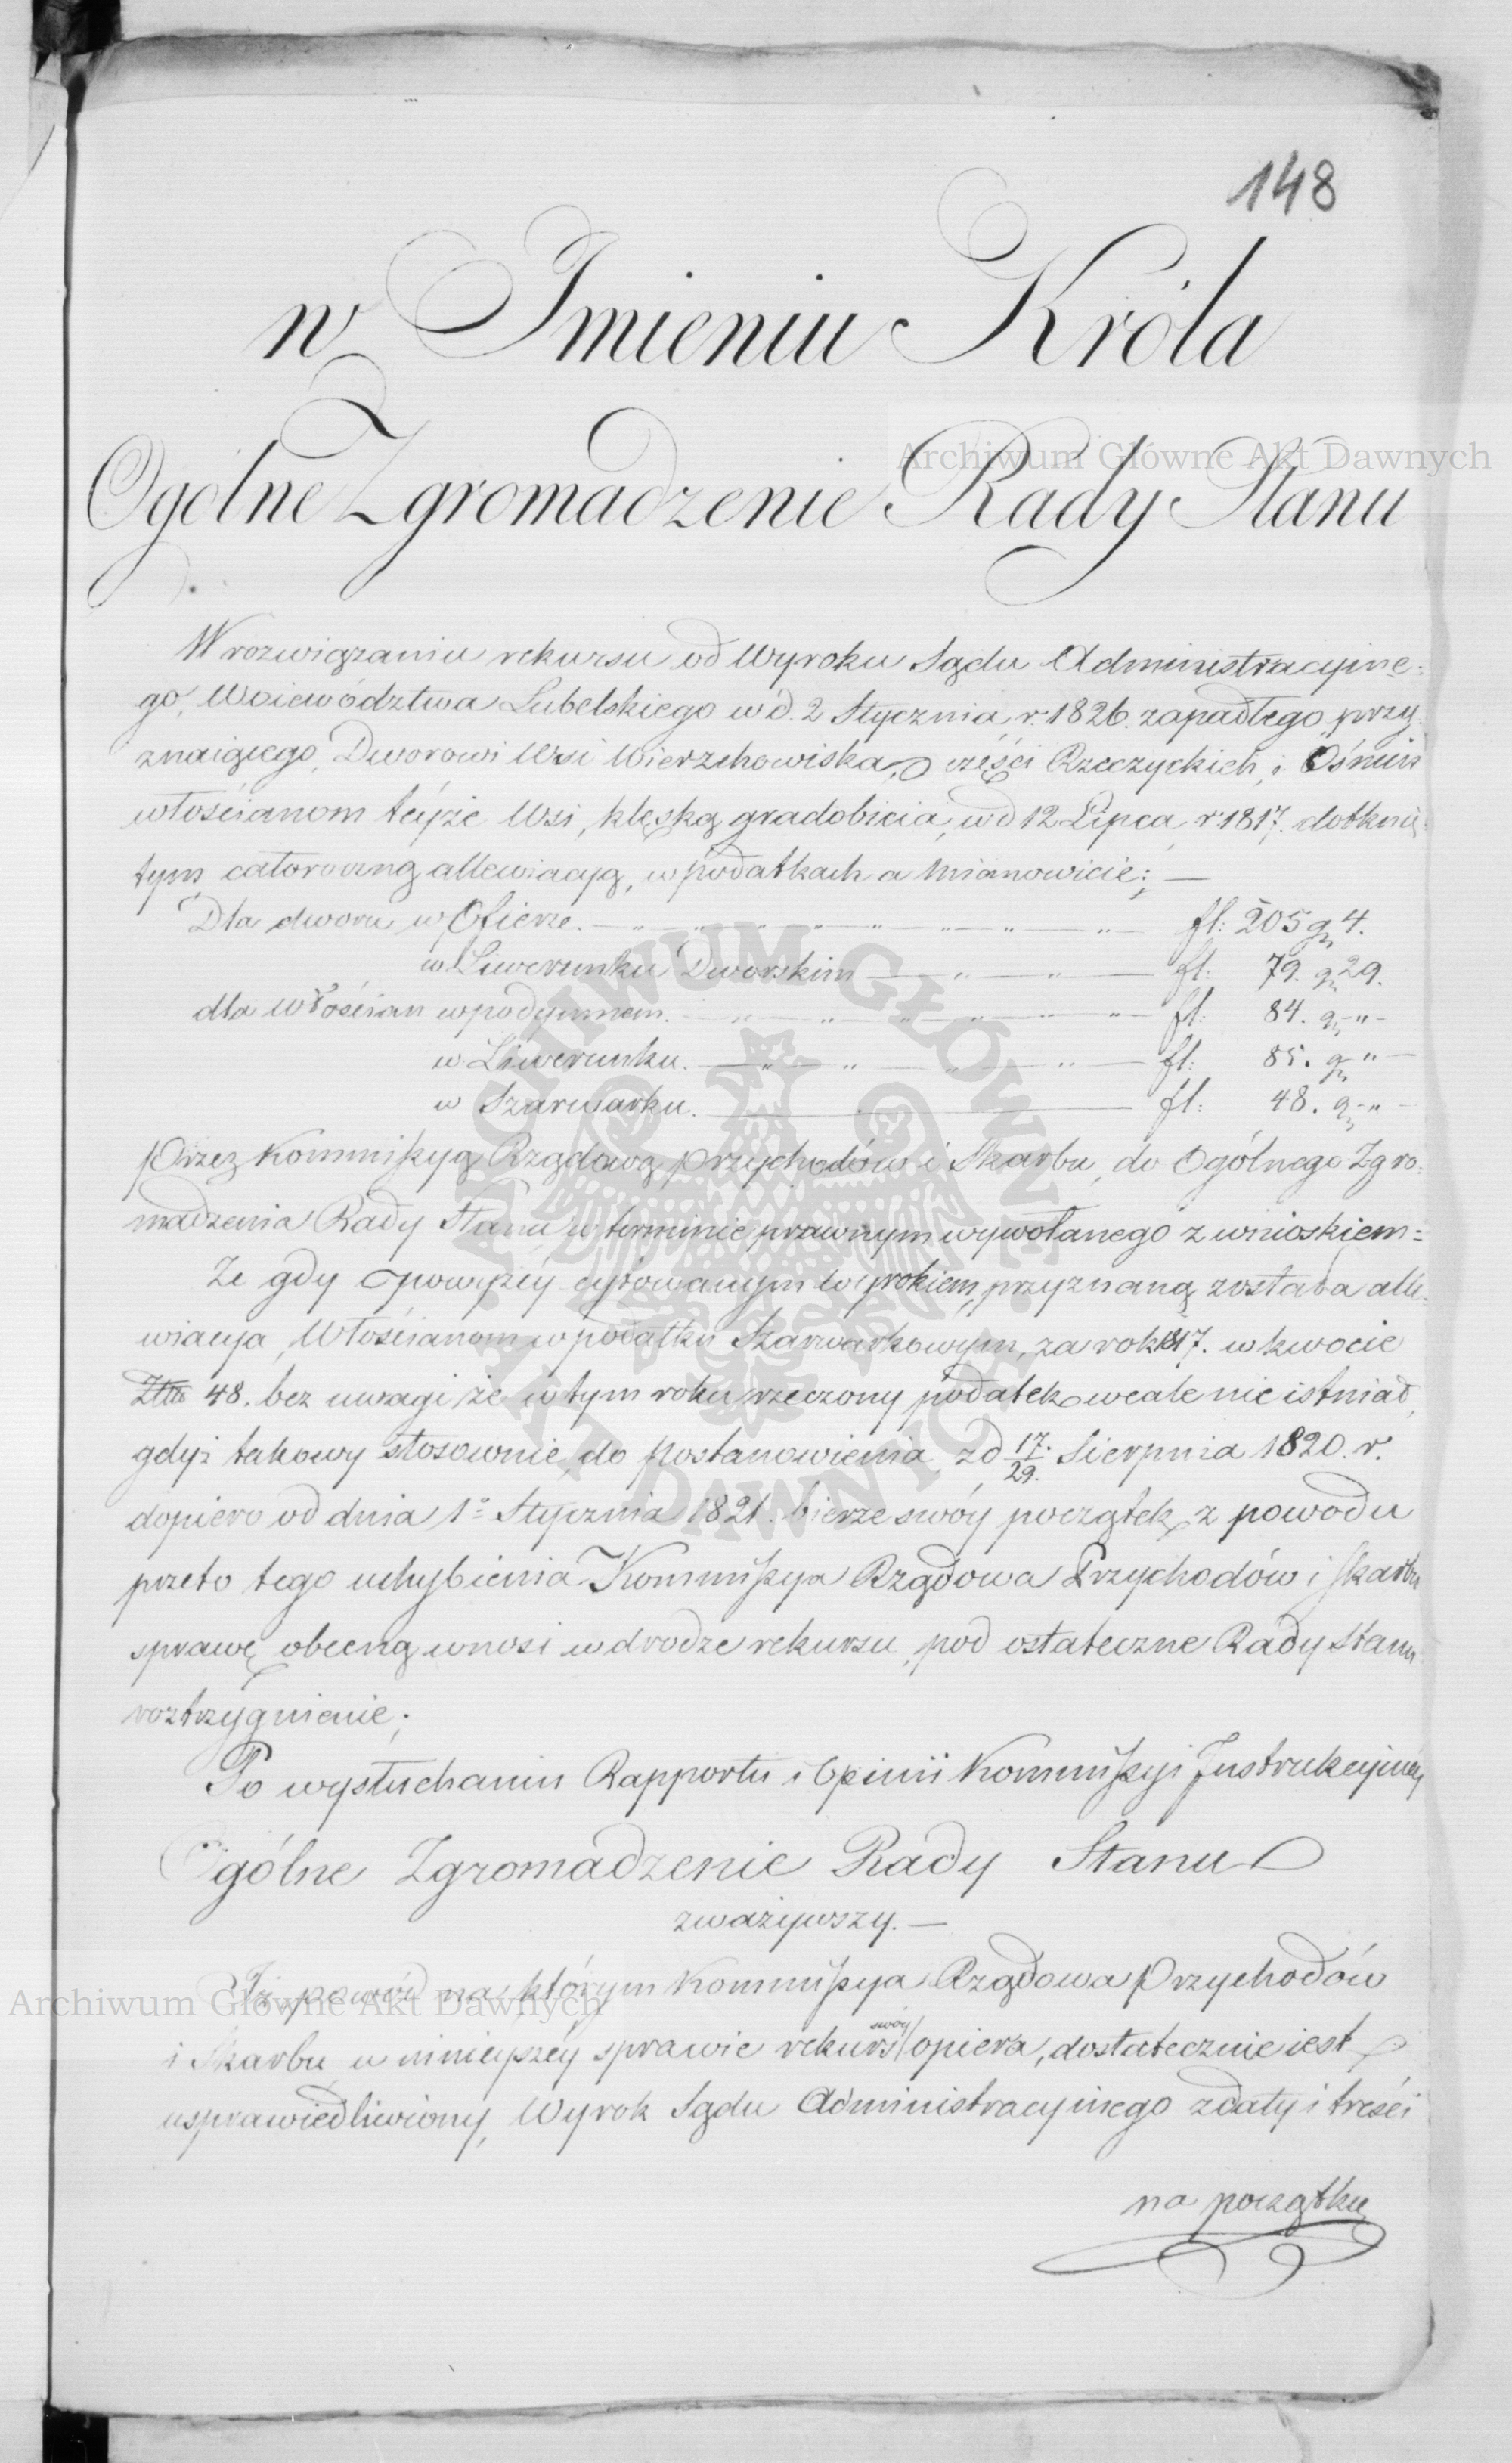 148
w Imieniu Króla
Ogólne Zgromadzenie Rady Stanu
W rozwiązaniu rekursu od Wyroku Sądu Administracyine-
go, Woiewództwa Lubelskiego w d. 2 Stycznia r. 1826. zapadłego, przy-
znaiącego, Dworowi Wsi Wierzchowiska, części Rzeczyckich, i Ośmiu
włościanom teyże Wsi, klęską gradobicia, w d 12 Lipca r 1817. dotknię-
tym całoroczną allewiacyą, w podatkach a mianowicie: —
Dla dworu w Ofierze. — " — " — " — " — " — " — fl: 205 gr 4.
w Liwerunku Dworskim — " — " — fl: 79. gr 29.
dla Włościan w podymnem. — " — " — " — " — " — " — fl: 84. gr " —
w Liwerunku. — " — " — " — " — fl: 85. gr " —
w Szarwarku. — fl: 48. gr " —
przez Kommissyą Rządową przychodów i Skarbu, do Ogólnego Zgro-
madzenia Rady Stanu w terminie prawnym wywołanego z wnioskiem =
Ze gdy powyżéy cytowanym wyrokiem, przyznaną została alle-
wiacya, Włościanom w podatku Szarwarkowym, za rok 1817. w kwocie
Złt 48. bez uwagi że w tym roku rzeczony podatek wcale nie istniał,
gdyż takowy stosownie do postanowienia z d 17/29. Sierpnia 1820. r.
dopiero od dnia 1º Stycznia 1821. bierze swóy początek, z powodu
przeto tego uchybienia Kommissya Rządowa Przychodów i Skarbu
sprawę obecną wnosi w drodze rekursu, pod ostateczne Rady Stanu
roztrzygnienie;
Po wysłuchaniu Rapportu i Opinii Kommissyi Instrukcyiney
Ogólne Zgromadzenie Rady Stanu
zważywszy. —
Iż powód na którym Kommissya Rządowa Przychodów
i Skarbu w ninieyszéy sprawie rekurs swóy opiera, dostatecznie iest
usprawiedliwiony, Wyrok Sądu Administracyinego z daty i treści
na początku
Archiwum Główne Akt Dawnych
Archiwum Główne Akt Dawnych
ARCHIWUM GŁÓWNE AKT DAWNYCH